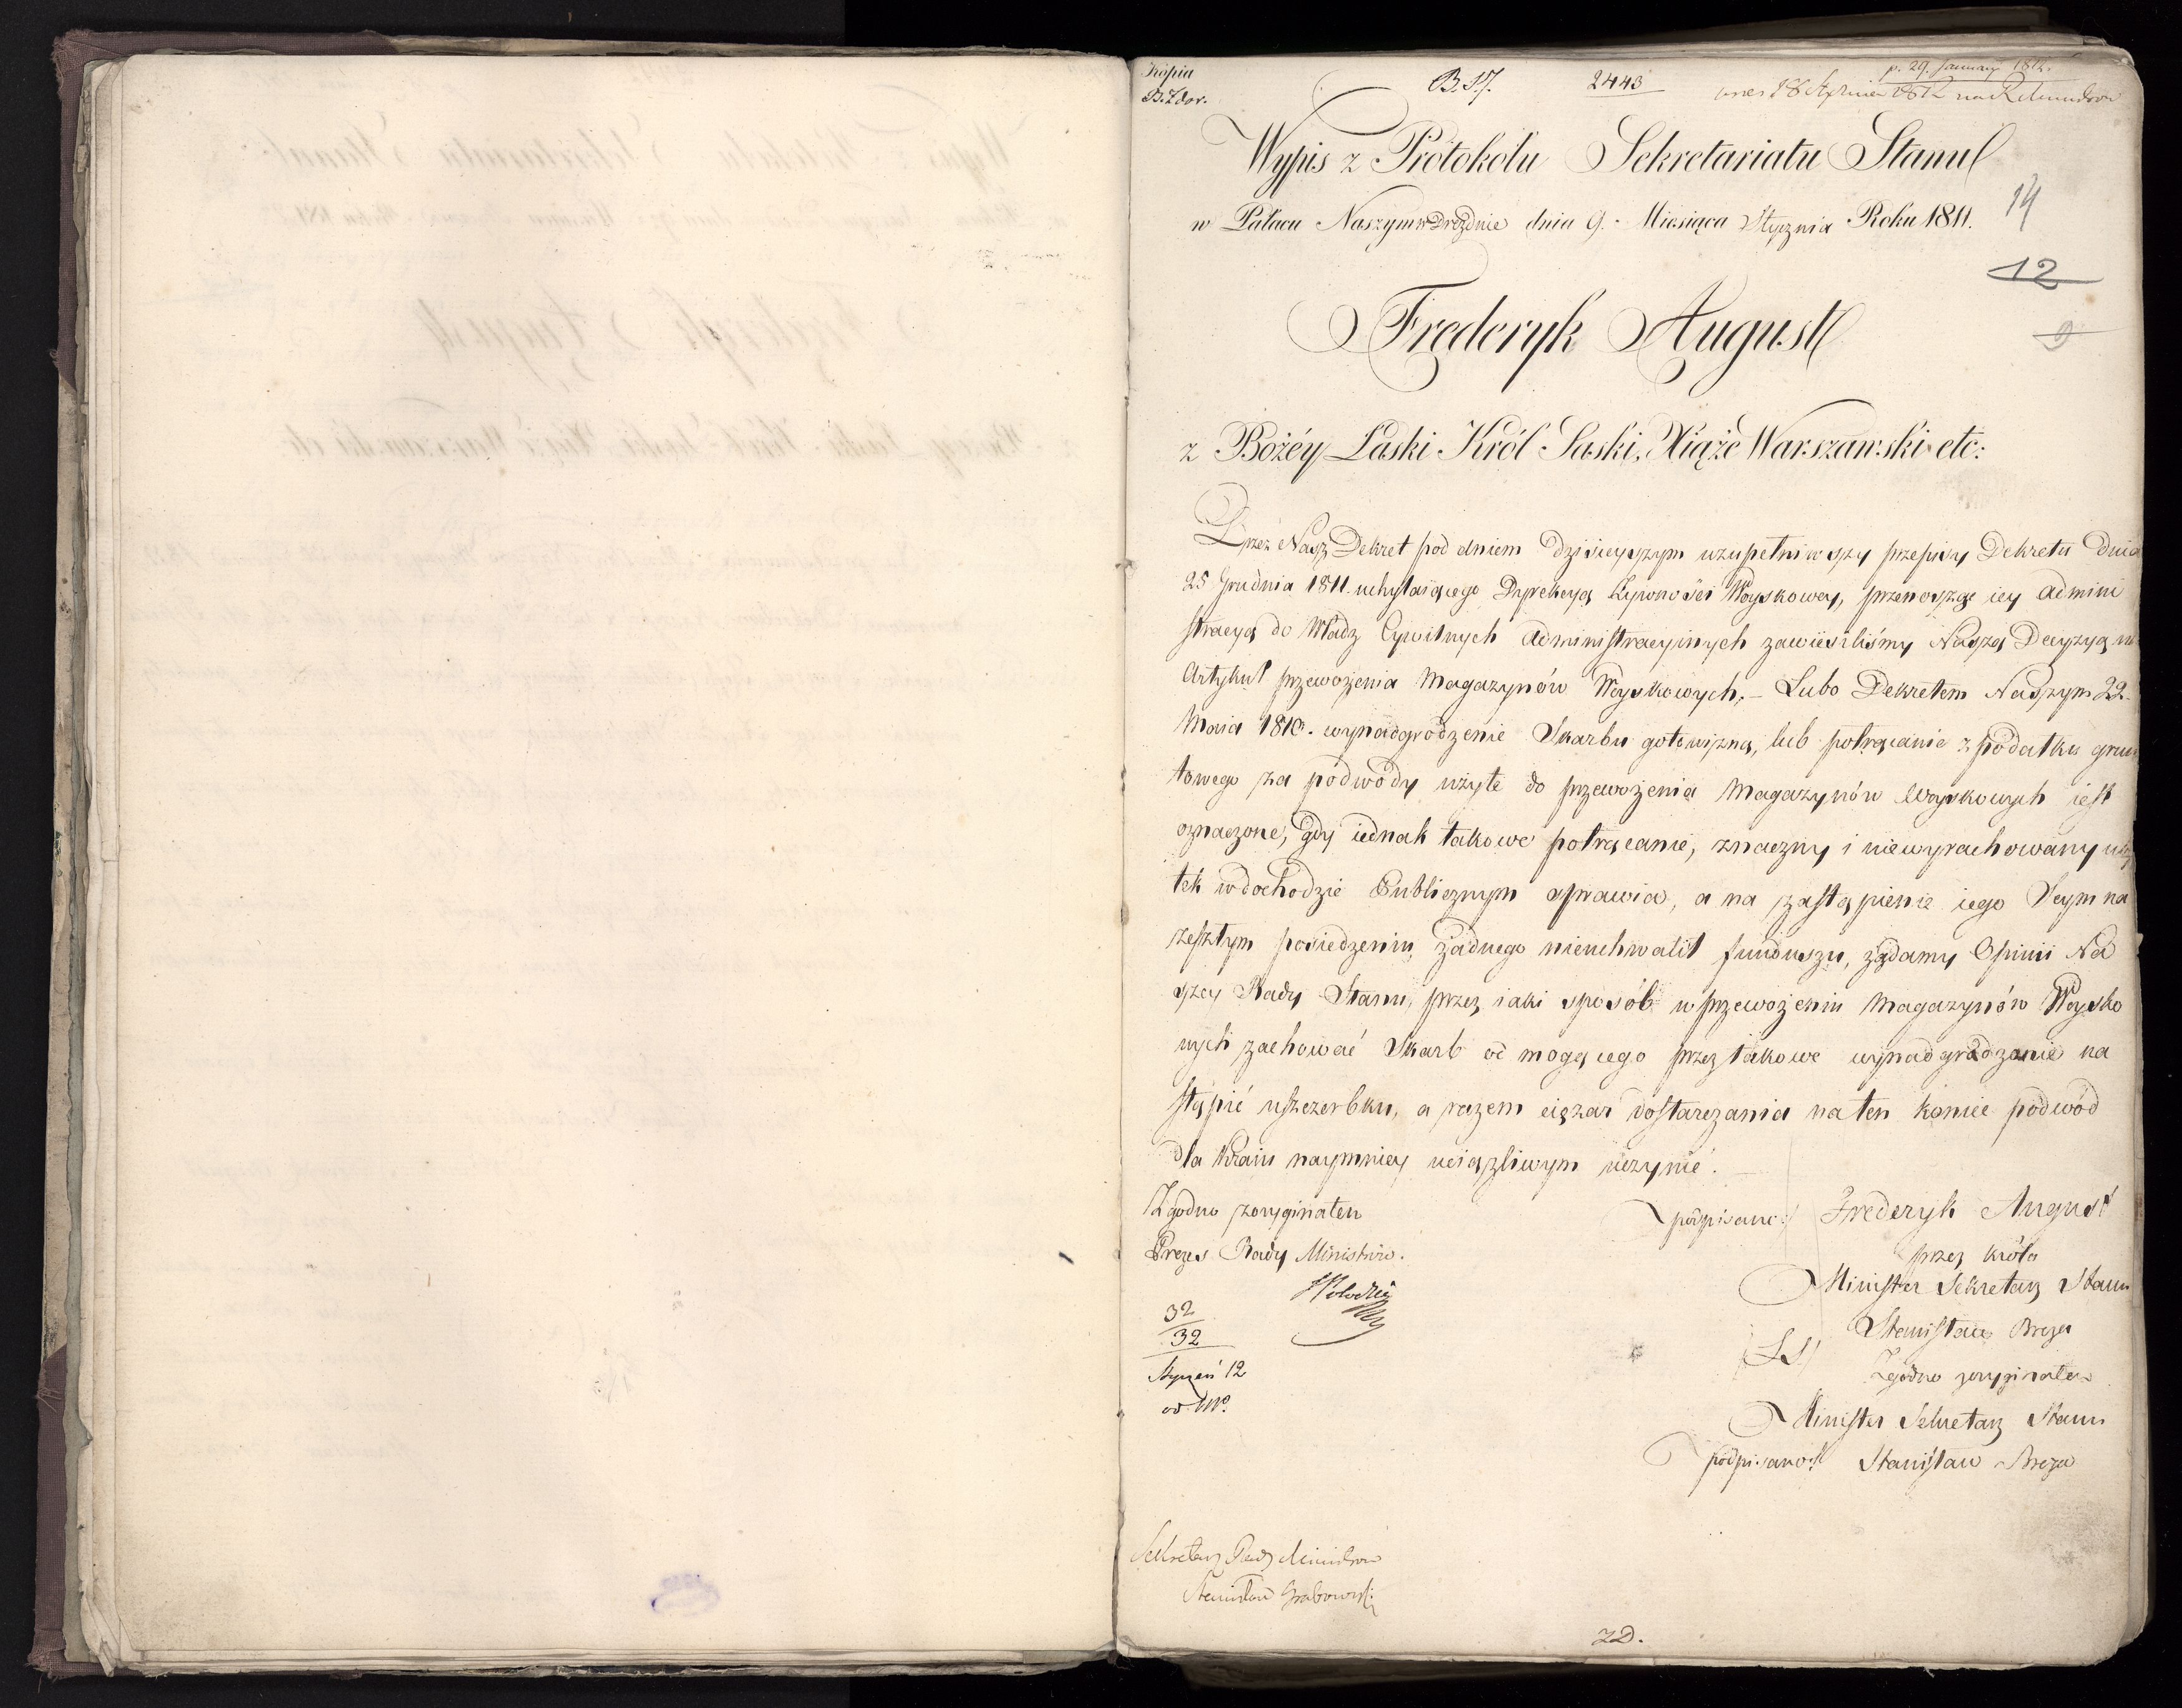 Kopia
B. 17.
2443
p. 29. January 1812.
B. Zdar.
18 Stycznia 1812 na R Ministrów
Wypis z Protokołu Sekretariatu Stanu
14
w Pałacu Naszym w Dreźnie dnia 9. Miesiąca Stycznia Roku 1811.
12
Frederyk August
9
z Bożéy Łaski Król Saski, Xiąże Warszawski etc:
Przez Nasz Dekret pod dniem dzisieyszym uzupełniwszy przepisy Dekretu dnia
25 Grudnia 1811. uchylaiącego Dyrekcyą Żywności Woyskowey, przenosząc iey admini
stracyą do Władz Cywilnych administracyinych zawiesiliśmy Naszą Decyzyą w
Artykuł przewożenia Magazynów Woyskowych; – Lubo Dekretem Naszym 22.
Maia 1810. wynadgrodzenie Skarbu gotowizną, lub potrącanie z podatku grun
towego za podwody użyte do przewożenia Magazynów Woyskowych iest
oznaczone, gdy iednak takowe potrącanie, znaczny i niewyrachowany uszy
tek w dochodzie Publicznym sprawia, a na zastąpienie iego Seym na
zeszłym posiedzeniu żadnego nieuchwalił funduszu, żądamy Opinii Na
szey Rady Stanu, przez iaki sposób w przewożeniu Magazynów Woysko
wych zachować Skarb od mogącego przez takowe wynadgradzanie na
stąpić uszczerbku, a razem ciężar dostarczania na ten koniec podwód
dla Kraiu naymniey uciążliwym uczynić. –
Zgodno z oryginałem
podpisano:/ Frederyk August
Prezes Rady Ministrów.
przez Króla
Minister Sekretarz Stanu
32
32
Stanisław Breza
(LS)
Styczeń 12
Zgodno z oryginałem
od M.
Minister Sekretarz Stanu
podpisano:/ Stanisław Breza
Sekretarz Rady Ministrów
Stanisław Grabowski
ZD.